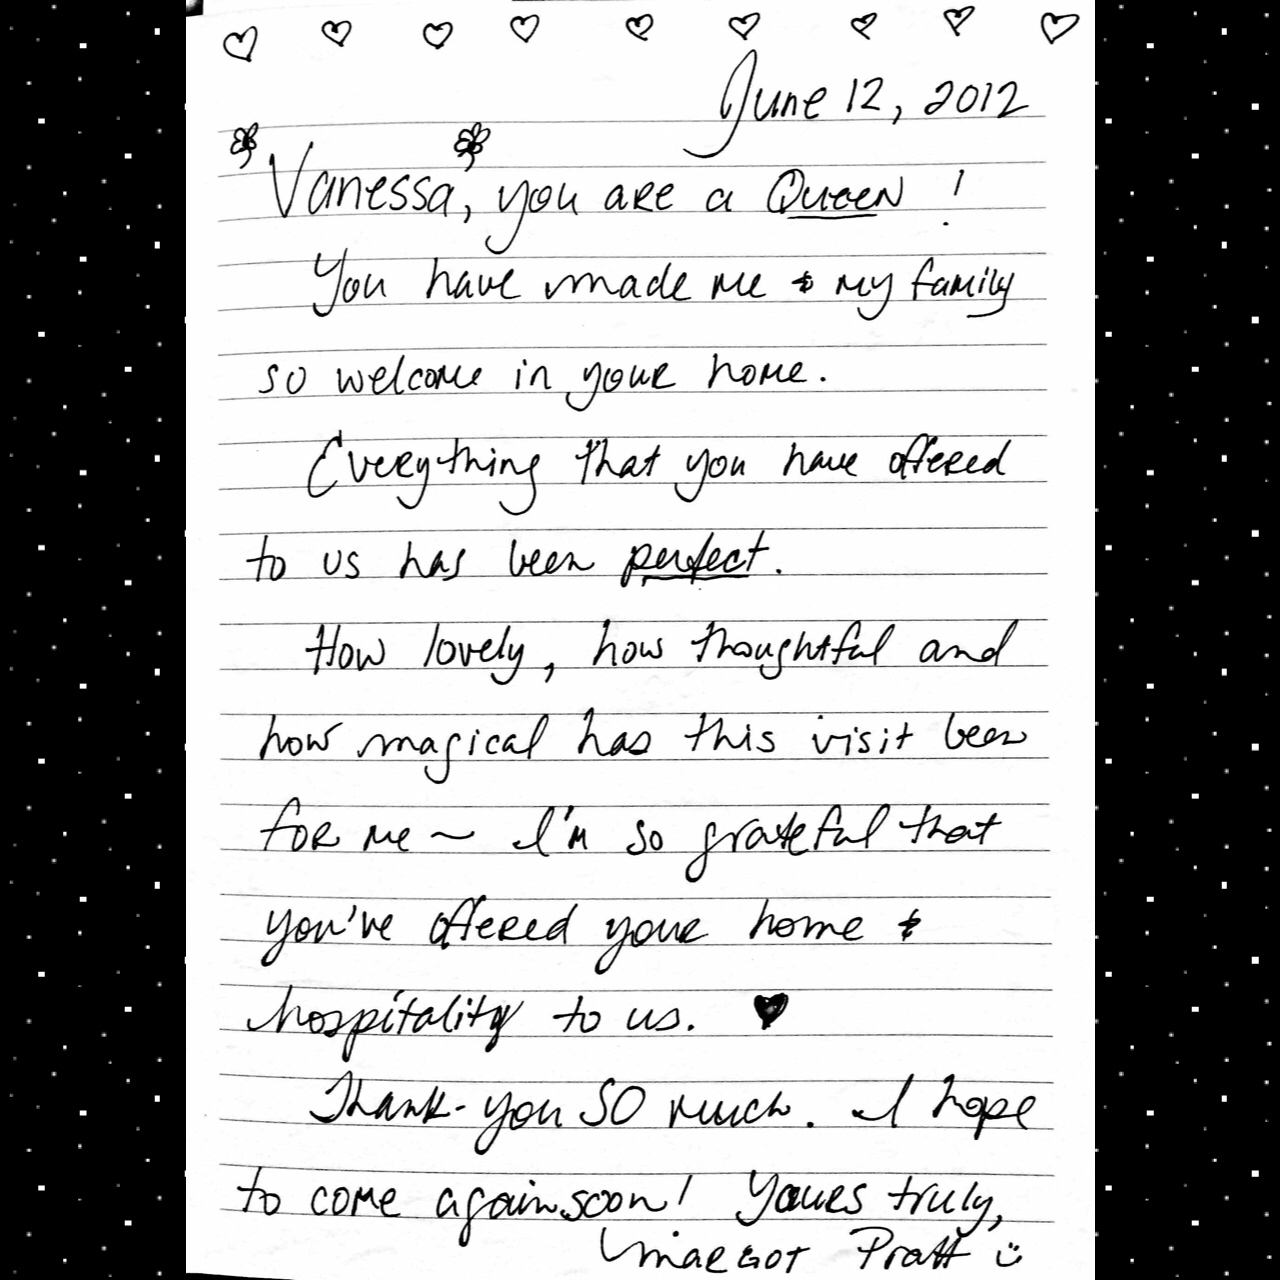 June 12, 2012
Vanessa, you are a Queen !
You have made me & my family
so welcome in your home.
Everything that you have offered
to us has been perfect.
How lovely, how thoughtful and
how magical has this visit been
for me ~ I'm so grateful that
you've offered your home &
hospitality to us. ♥
Thank-you SO much. I hope
to come again soon! Yours truly,
Margot Pratt ☺